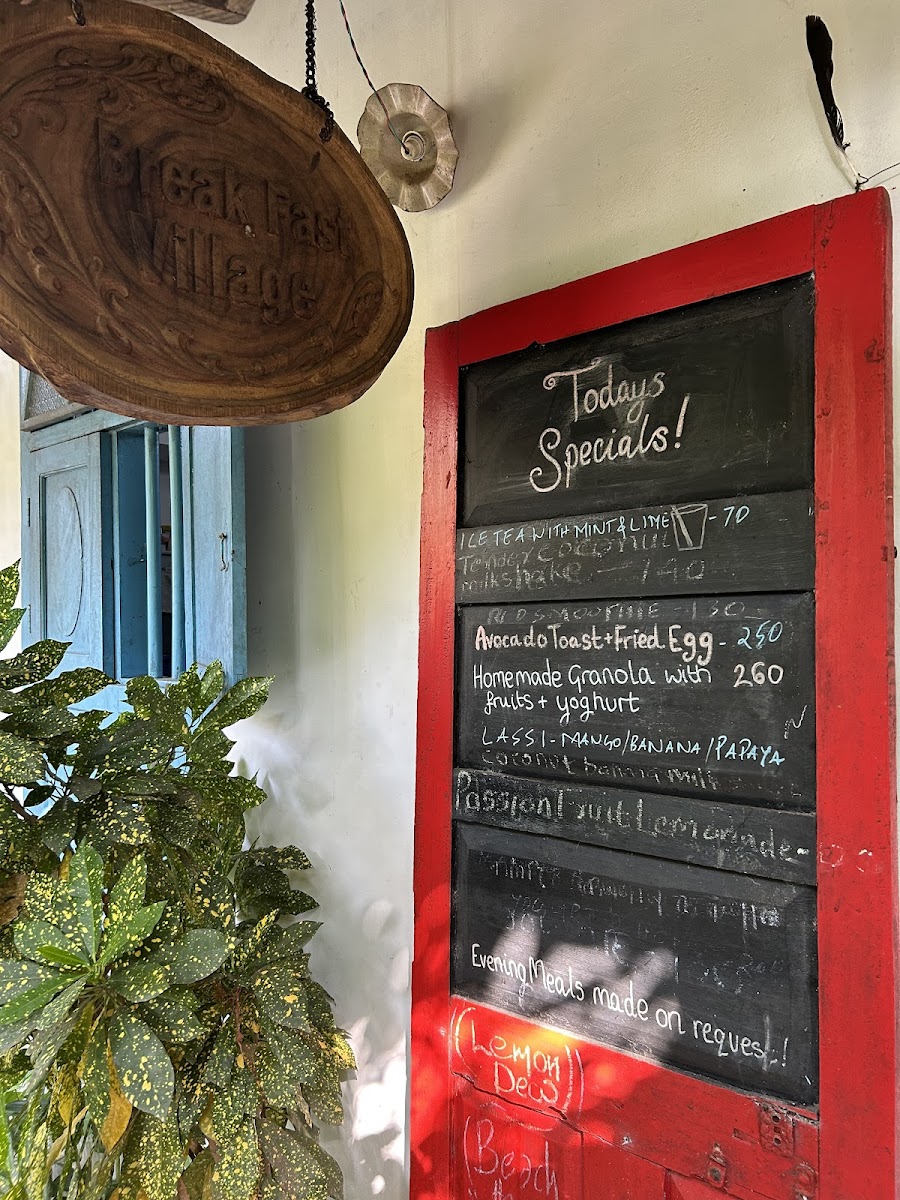 Break Fast
Village
Todays
Specials!
ICE TEA WITH MINT & LIME - 70
Tender coconut
milkshake - 140
SMOOTHIE - 130
Avocado Toast + Fried Egg - 250
Homemade Granola with 260
fruits + yoghurt
LASSI - MANGO/BANANA/PAPAYA
Coconut banana
Passion fruit Lemonade -
Evening Meals made on request!
(Lemon
Dew)
(Beach